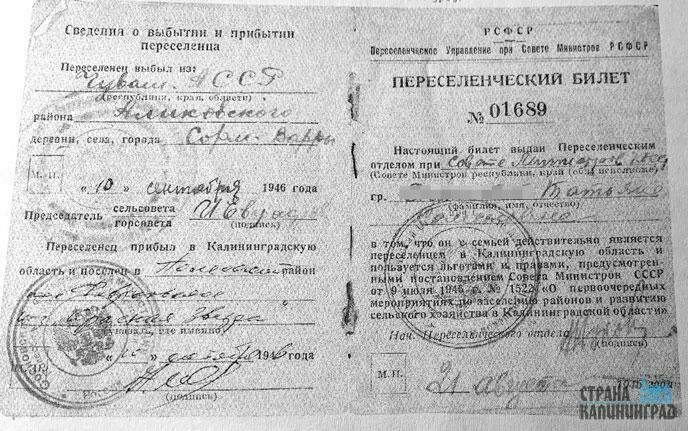 Сведения о выбытии и прибытии
переселенца
Переселенец выбыл из:
Чуваш. АССР
(республики, края, области)
района Аликовского
деревни, села, города Сорм-Вары
М. П.
„10" сентября 1946 года
Председатель сельсовета
горсовета
(подпись)
Переселенец прибыл в Калининградскую
область и поселен в район
(указать, где именно)
октября 1946 года
(подпись)
РСФСР
Переселенческое Управление при Совете Министров РСФСР
ПЕРЕСЕЛЕНЧЕСКИЙ БИЛЕТ
№ 01689
Настоящий билет выдан Переселенческим
отделом при Совете Министров
(Совете Министров республики, края (обл) исполкоме)
гр. Татьяна
(фамилия, имя, отчество)
в том, что он с семьей действительно является
переселенцем в Калининградскую область и
пользуется льготами и правами, предусмотрен-
ными постановлением Совета Министров СССР
от 9 июля 1946 г. № 1522 «О первоочередных
мероприятиях по заселению районов и развитию
сельского хозяйства в Калининградской области»
Нач. Переселенческого отдела
(подпись)
М.П.
21 августа 1946 года
СТРАНА
КАЛИНИНГРАД